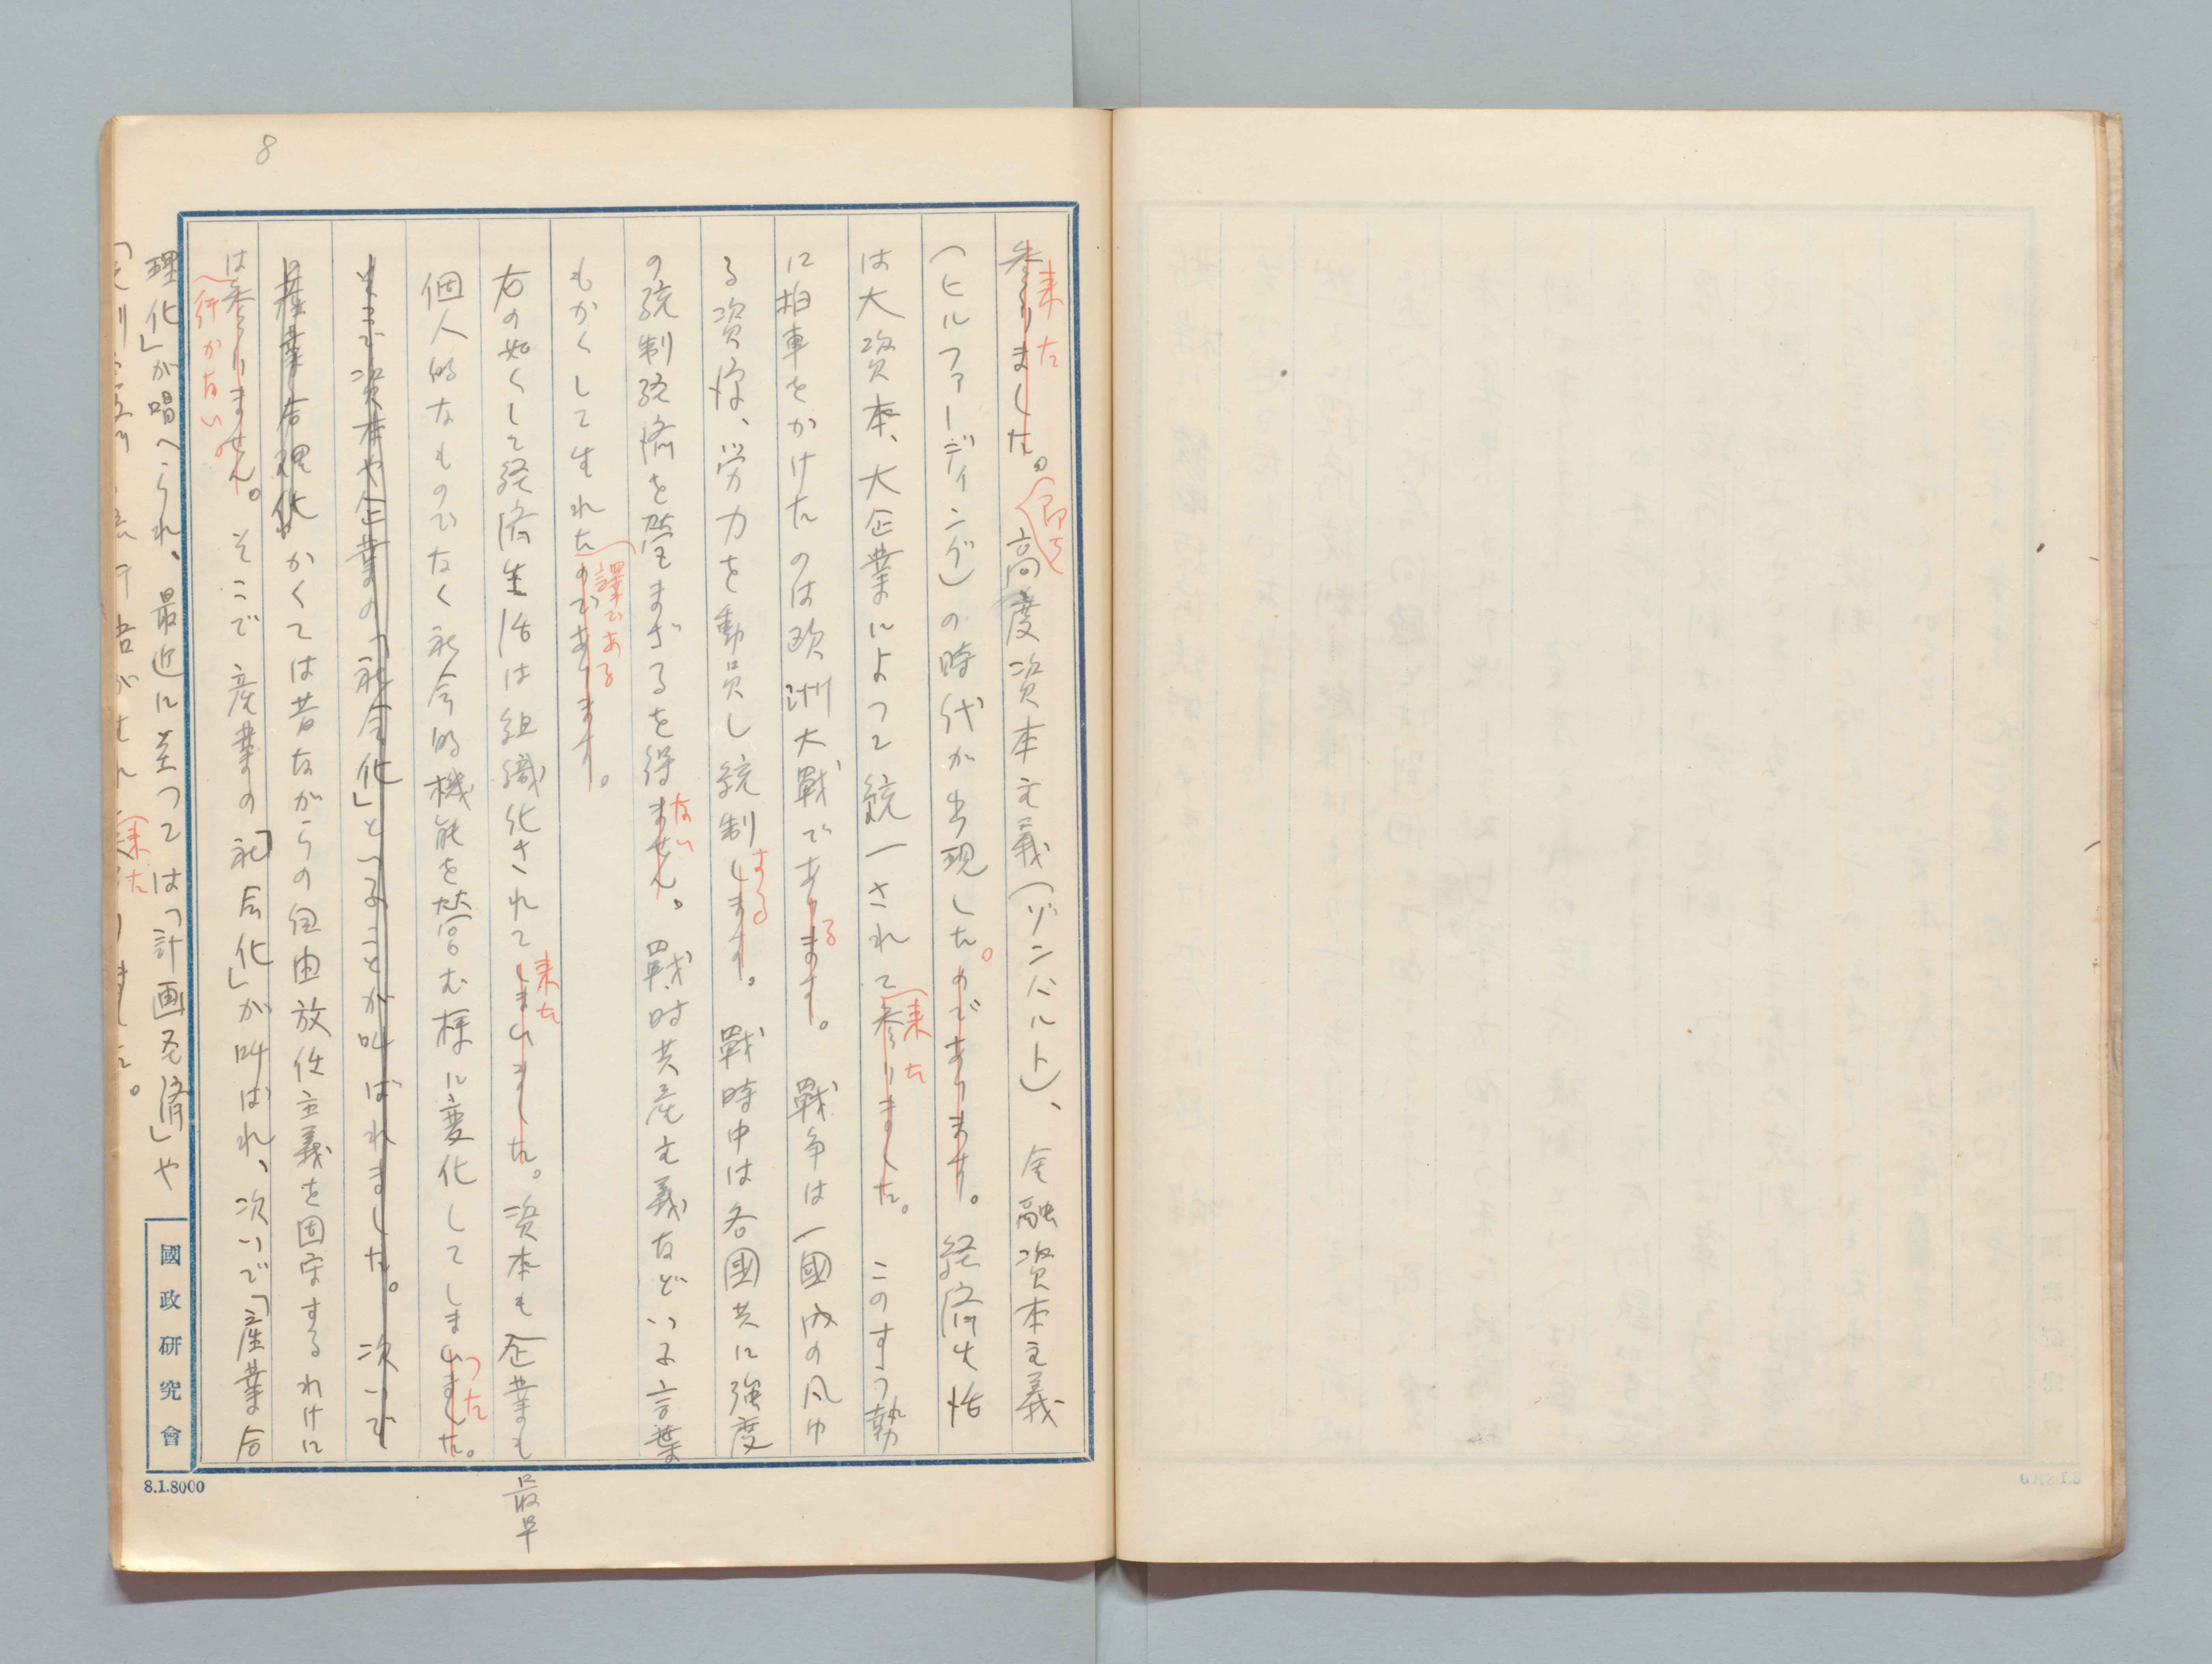 8
参りました。高度資本主義(ゾンバルト)、金融資本主義
来た
即ち
(ヒルファーディング)の時代が出現したのであります。経済生活
は大資本、大企業によつて統一されて参りました。このすう勢
来た
に拍車をかけたのは欧洲大戦であります。戦争は一國内の凡ゆ
る
る資源、労力を動員し統制します。戦時中は各國共に強度
する
の統制経済を営まざるを得ません。戦時共産主義などいふ言葉
ない
もかくして生れたのであります。
譯である
右の如くして経済生活は組織化されてしまいました。資本も企業も最早
来た
個人的なものでなく社会的機能を営む様に変化してしまいました。
つた
そこで資本や企業の「社会化」といふことが叫ばれました。次いで
産業合理化 かくては昔ながらの自由放任主義を固守するわけに
は参りません。そこで産業の「社会化」が叫ばれ、次いで「産業合
行かない。
理化」が唱へられ、最近に至つては「計画経済」や
来た
國政研究會
8.1.8000